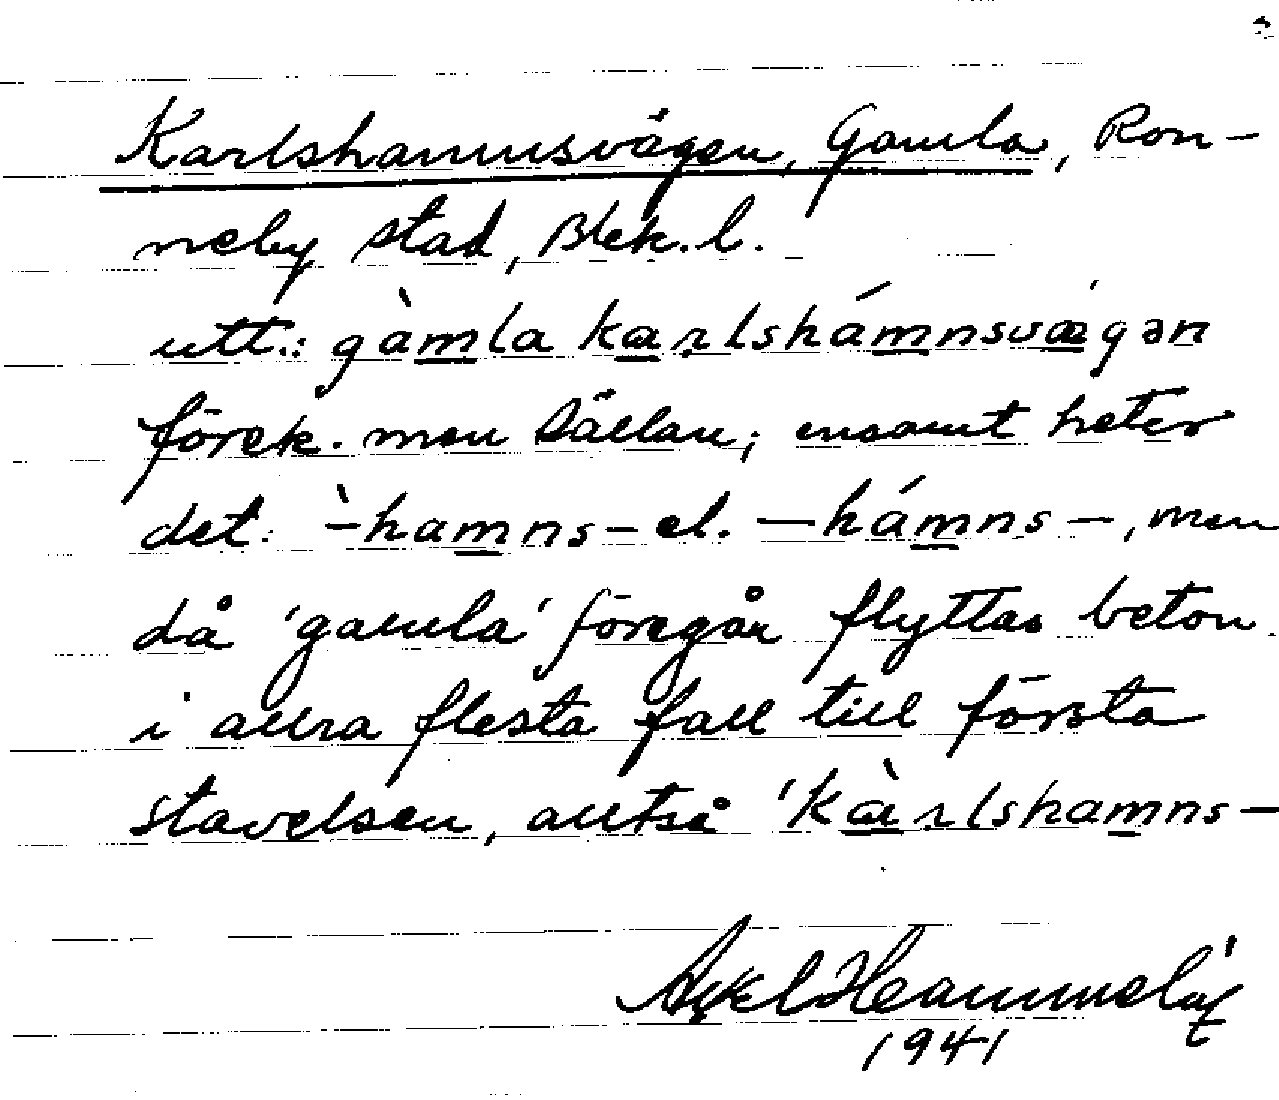 Karlshamnsvägen, Gamla, Ron-
neby stad, Blek. l.
utt.: gàmla karlshámnsvægən
förek. men sällan; ensamt heter
det: -̀hamns- el. -hámns-, men
då 'gamla' föregår flyttas beton.
i allra flesta fall till första
stavelsen, alltså 'kàrlshamns-
Axel
1941